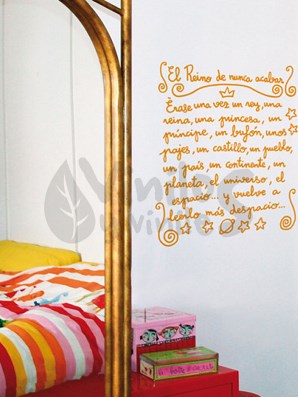 El Reino de nunca acabar
Érase una vez un rey, una
reina, una princesa, un
príncipe, un bufón, unos
pajes, un castillo, un pueblo,
un país, un continente, un
planeta, el universo, el
espacio... y vuelve a
leerlo más despacio...
vinilos
y vinilos